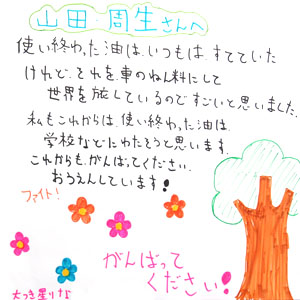 山田 周生さんへ
使い終わった油は、いつもは、すてていた
けれど、それを車のねん料にして
世界を旅しているのですごいと思いました。
私もこれからは、使い終わった油は、
学校などにわたそうと思います。
これからも、がんばってください。
おうえんしています!
ファイト!
がんばって
ください!
大つき星りな